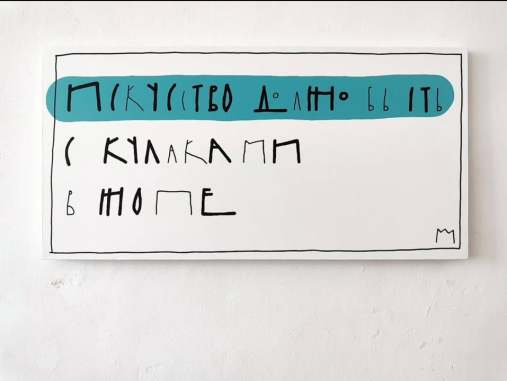 ИСКУССТВО ДОЛЖНО БЫТЬ
С КУЛАКАМИ
В ЖОПЕ